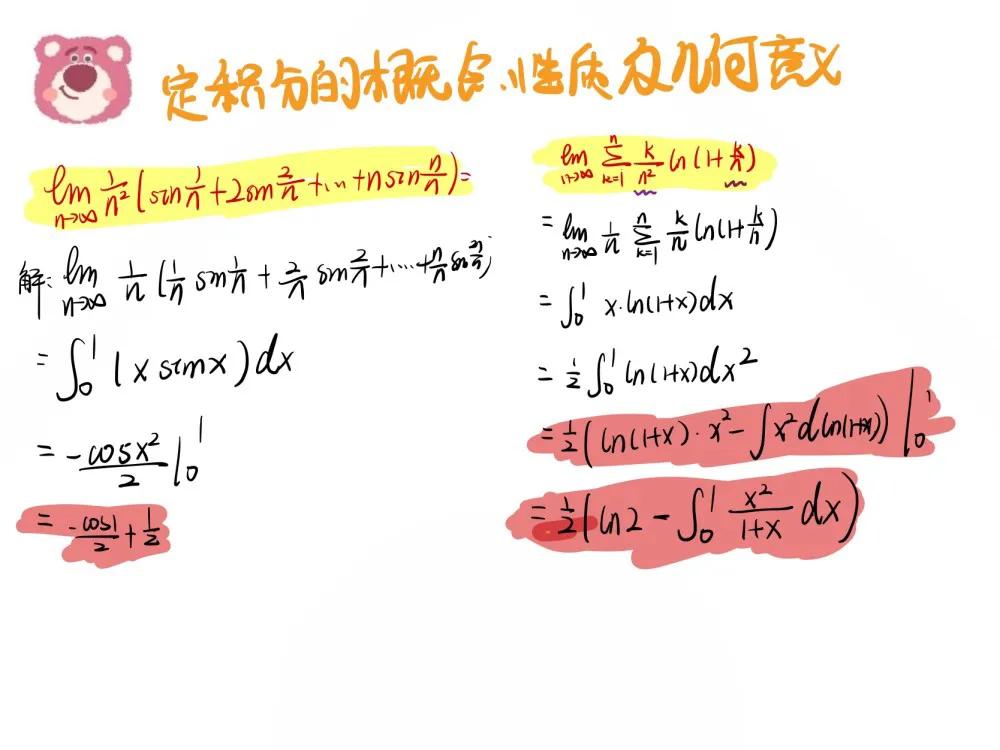 定积分的概念、性质及几何意义
lim n→∞ 1/n² (sin 1/n + 2sin 2/n + ... + n sin n/n) =
解: lim n→∞ 1/n (1/n sin 1/n + 2/n sin 2/n + .... + n/n sin n/n)
= ∫₀¹ (x sinx) dx
= -cosx²/2 |₀¹
= -cos1/2 + 1/2
lim n→∞ Σ k=1 n k/n² ln(1+k/n)
= lim n→∞ 1/n Σ k=1 n k/n ln(1+k/n)
= ∫₀¹ x·ln(1+x)dx
= 1/2 ∫₀¹ ln(1+x)dx²
= 1/2 (ln(1+x)·x² - ∫x²d ln(1+x)) |₀¹
= 1/2 (ln2 - ∫₀¹ x²/1+x dx)